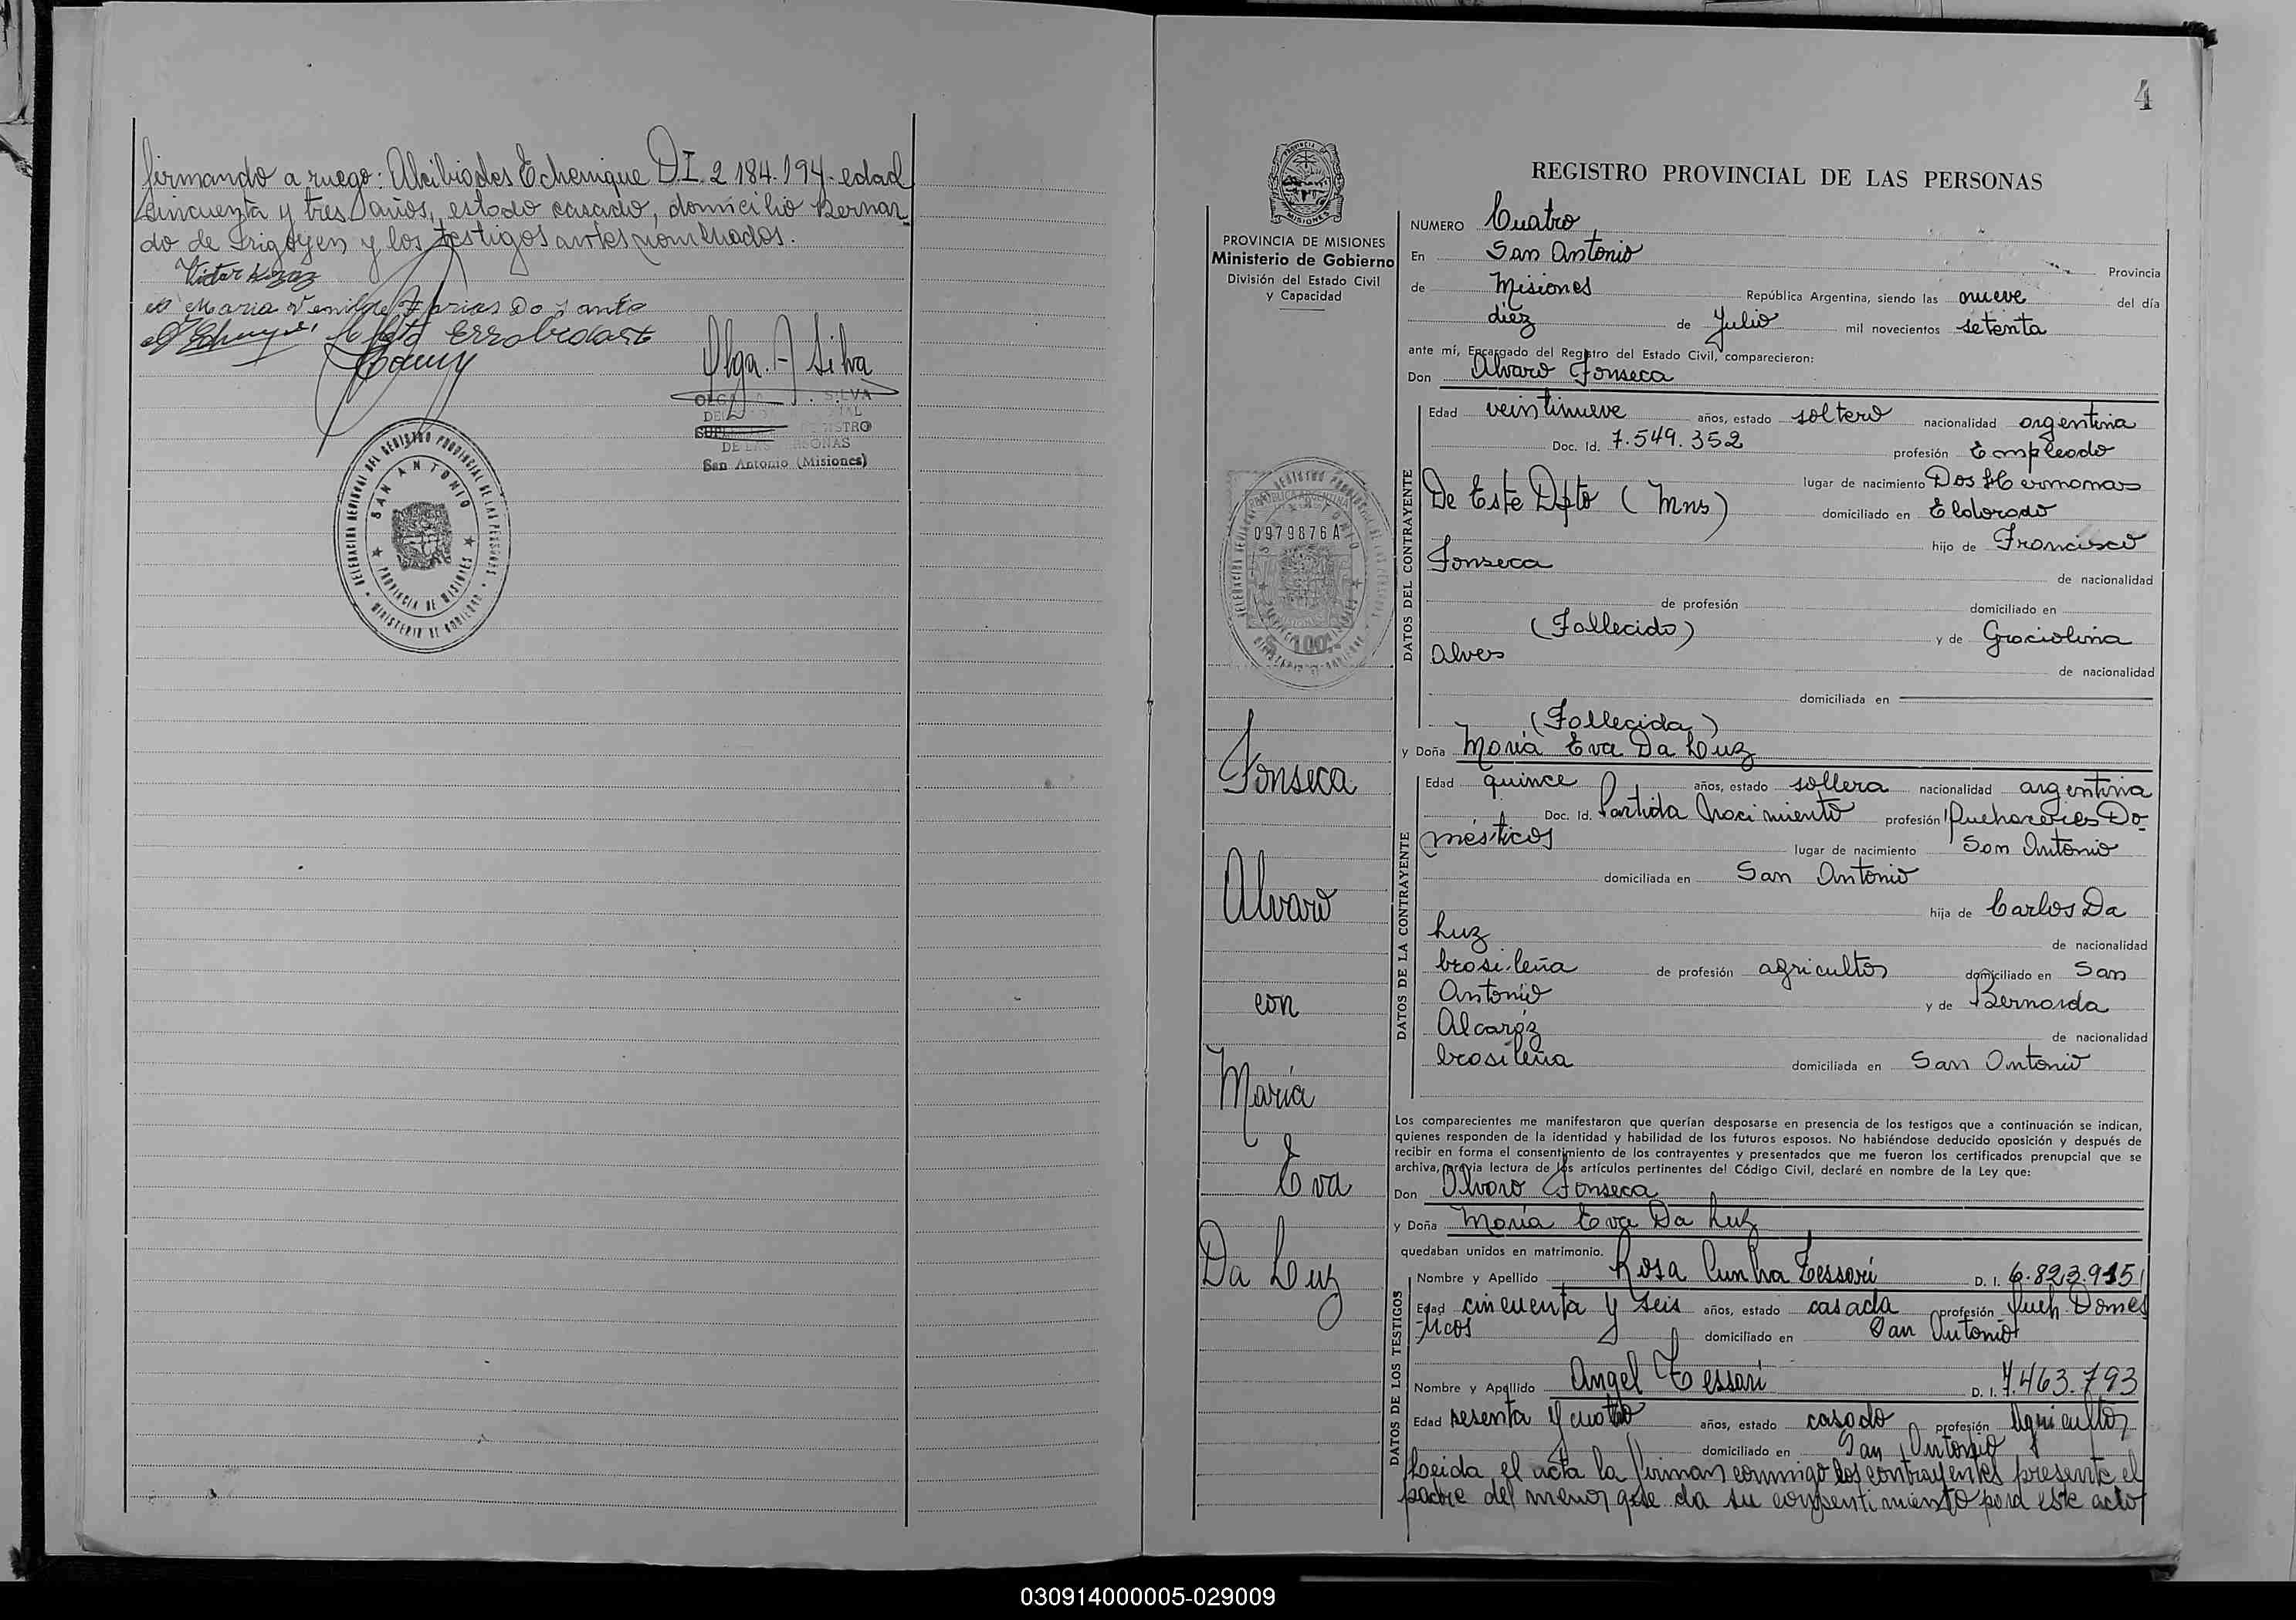 firmando a ruego: Alcibiades Echenique DI. 2.184.194. edad
cincuenta y tres años, estado casado, domicilio Bernar
do de Irigoyen y los testigos antes nombrados.
Maria
Olga. A Silva
SILVA
DE LAS PERSONAS
San Antonio (Misiones)
DELEGACION REGIONAL DEL REGISTRO PROVINCIAL DE LAS PERSONAS
SAN ANTONIO
PROVINCIA DE MISIONES
MINISTERIO DE GOBIERNO
4
PROVINCIA DE MISIONES
Ministerio de Gobierno
División del Estado Civil
y Capacidad
0979876A
Fonseca
Alvaro
con
María
Eva
Da Luz
REGISTRO PROVINCIAL DE LAS PERSONAS
NUMERO Cuatro
En San Antonio Provincia
de Misiones República Argentina, siendo las nueve del día
diez de Julio mil novecientos setenta
ante mí, Encargado del Registro del Estado Civil, comparecieron:
Don Alvaro Fonseca
DATOS DEL CONTRAYENTE
Edad veintinueve años, estado soltero nacionalidad argentina
Doc. Id. 7.549.352 profesión Empleado
lugar de nacimiento Dos Hermanas
De Este Dpto (Mns) domiciliado en Eldorado
hijo de Francisco
Fonseca de nacionalidad
de profesión domiciliado en
(Fallecido) y de Graciolina
Alves de nacionalidad
domiciliada en
(Fallecida)
y Doña María Eva Da Luz
DATOS DE LA CONTRAYENTE
Edad quince años, estado soltera nacionalidad argentina
Doc. Id. Partida Nacimiento profesión Quehaceres Do-
mésticos lugar de nacimiento San Antonio
domiciliada en San Antonio
hija de Carlos Da
Luz de nacionalidad
brasileña de profesión agricultor domiciliado en San
Antonio y de Bernarda
Alcaróz de nacionalidad
brasileña domiciliada en San Antonio
Los comparecientes me manifestaron que querían desposarse en presencia de los testigos que a continuación se indican,
quienes responden de la identidad y habilidad de los futuros esposos. No habiéndose deducido oposición y después de
recibir en forma el consentimiento de los contrayentes y presentados que me fueron los certificados prenupcial que se
archiva, previa lectura de los artículos pertinentes del Código Civil, declaré en nombre de la Ley que:
Don Alvaro Fonseca
y Doña María Eva Da Luz
quedaban unidos en matrimonio.
DATOS DE LOS TESTIGOS
Nombre y Apellido Rosa Cunha Tessari D. I. 6.823.915
Edad cincuenta y seis años, estado casada profesión Queh. Domes
ticos domiciliado en San Antonio
Nombre y Apellido Angel Tessari D. I. 7.463.793
Edad sesenta y cuatro años, estado casado profesión Agricultor
domiciliado en San Antonio
Leida el acta la firman conmigo los contrayentes presente el
padre del menor que da su consentimiento para este acto
030914000005-029009